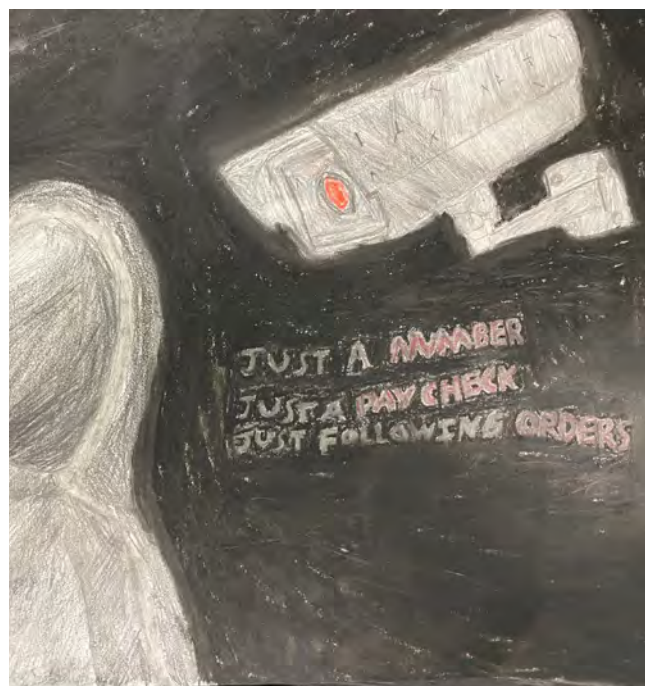 JUST A NUMBER
JUST A PAYCHECK
JUST FOLLOWING ORDERS